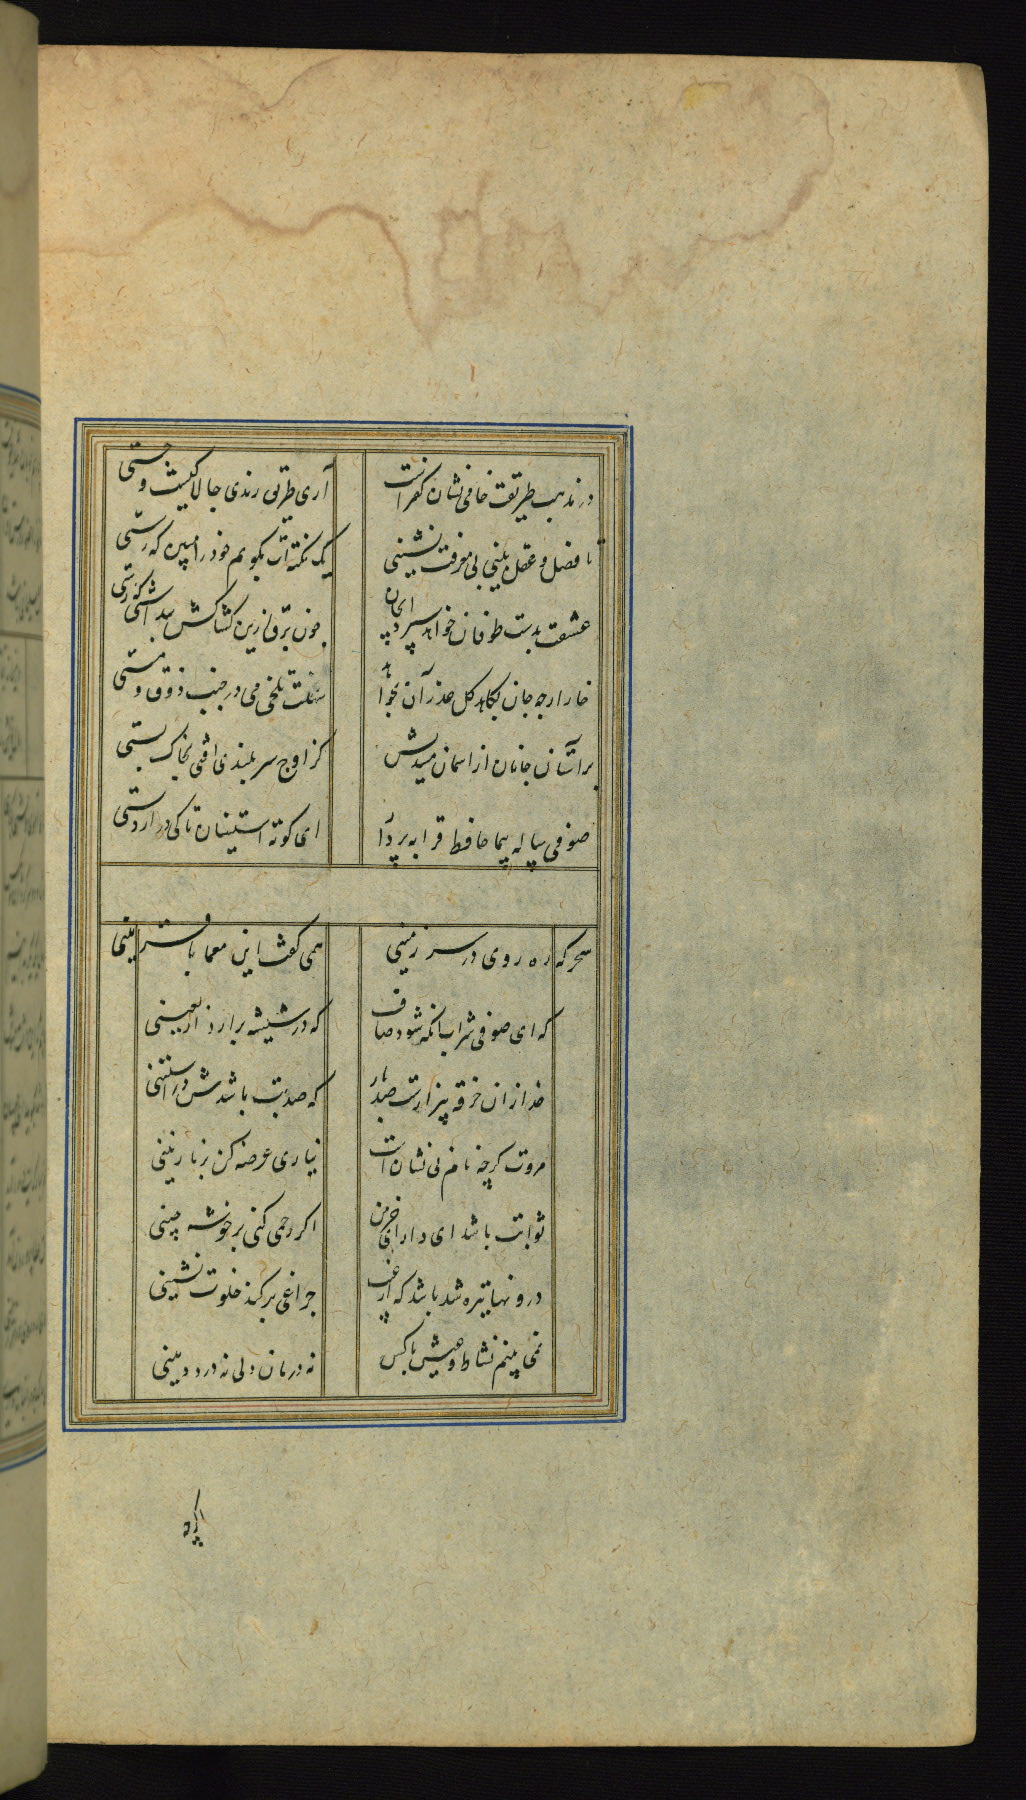 در مذهب طریقت خامی نشان کفر است آری طریق رندی چالاکیست و چستی
تا فضل و عقل بینی بی معرفت نشینی یک نکته ات بگویم خود را مبین که رستی
عشقت بدست طوفان خواهد سپرد ای جان چون برق ازین کشاکش پنداشتی که رستی
خار ارچه جان بکاهد گل عذر آن بخواهد سهلست تلخی می در جنب ذوق و مستی
بر آستان جانان از اسمان میندیش کز اوج سربلندی افتی بخاک پستی
صوفی پیاله پیما حافظ قرابه پرداز ای کوته استینان تا کی دراز دستی
سحرکه ره روی در سرزمینی همی گفت این معما با قرینی
که ای صوفی شراب آنکه شود صاف که در شیشه برآرد اربعینی
خدا زان خرقه بیزارست صدبار که صد بت باشدش در استینی
مروت گرچه نامی بی نشان است نیازی عرضه کن بر نازنینی
ثوابت باشد ای دارای خرمن اگر رحمی کنی بر خوشه چینی
درونها تیره شد باشد که از غیب چراغی بر کند خلوت نشینی
نمی بینم نشاط و عیش با کس نه درمان دلی نه درد دینی